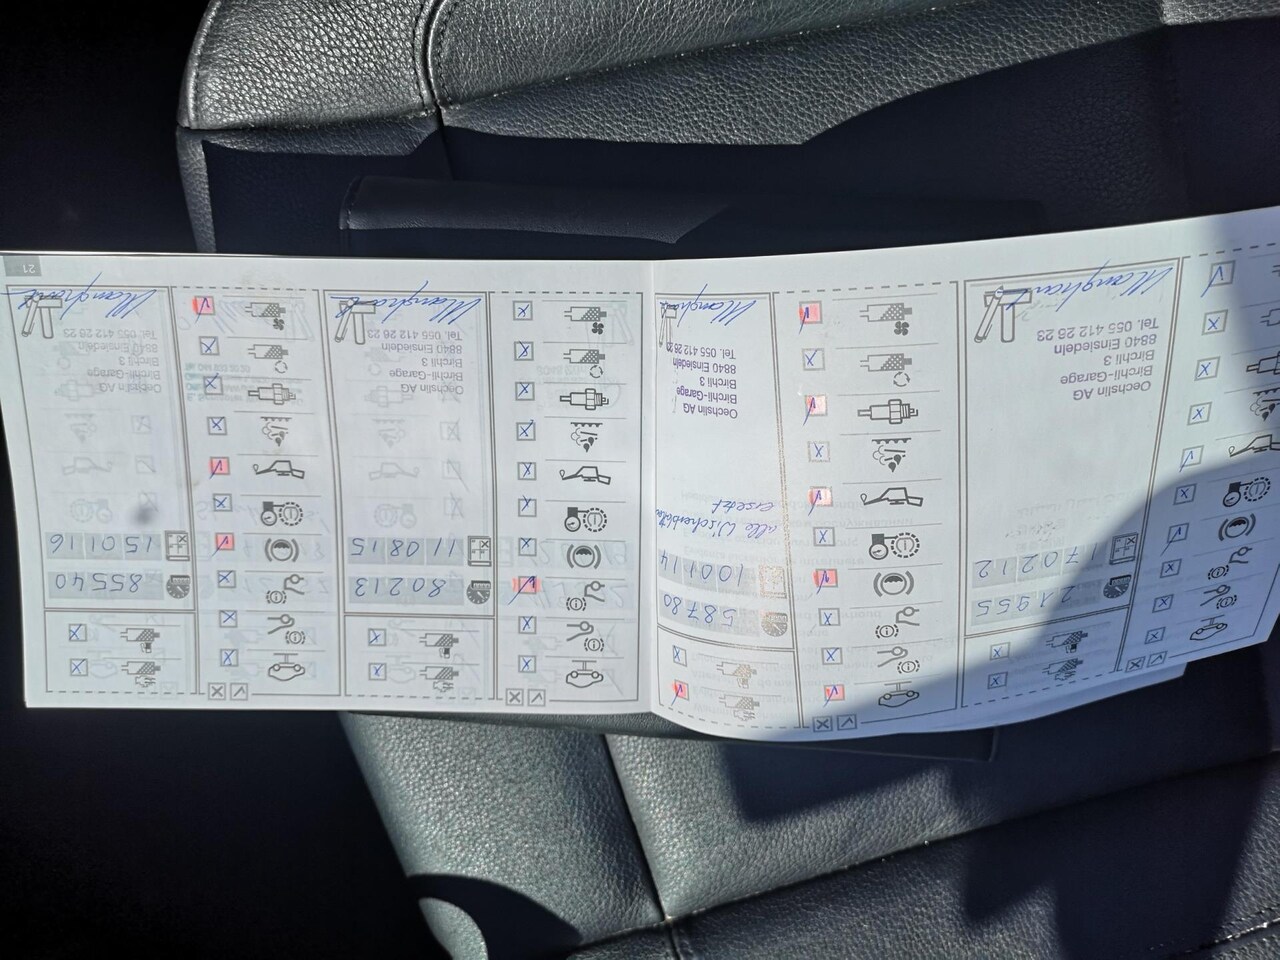 21955
170212
Oechslin AG
Birchli-Garage
Birchli 3
8840 Einsiedeln
Tel. 055 412 26 23
58780
100114
alle Wischerblätter
ersetzt
Oechslin AG
Birchli-Garage
Birchli 3
8840 Einsiedeln
Tel. 055 412 26 23
80213
110815
Oechslin AG
Birchli-Garage
Birchli 3
8840 Einsiedeln
Tel. 055 412 26 23
85540
150116
Oechslin AG
Birchli-Garage
Birchli 3
8840 Einsiedeln
Tel. 055 412 26 23
21